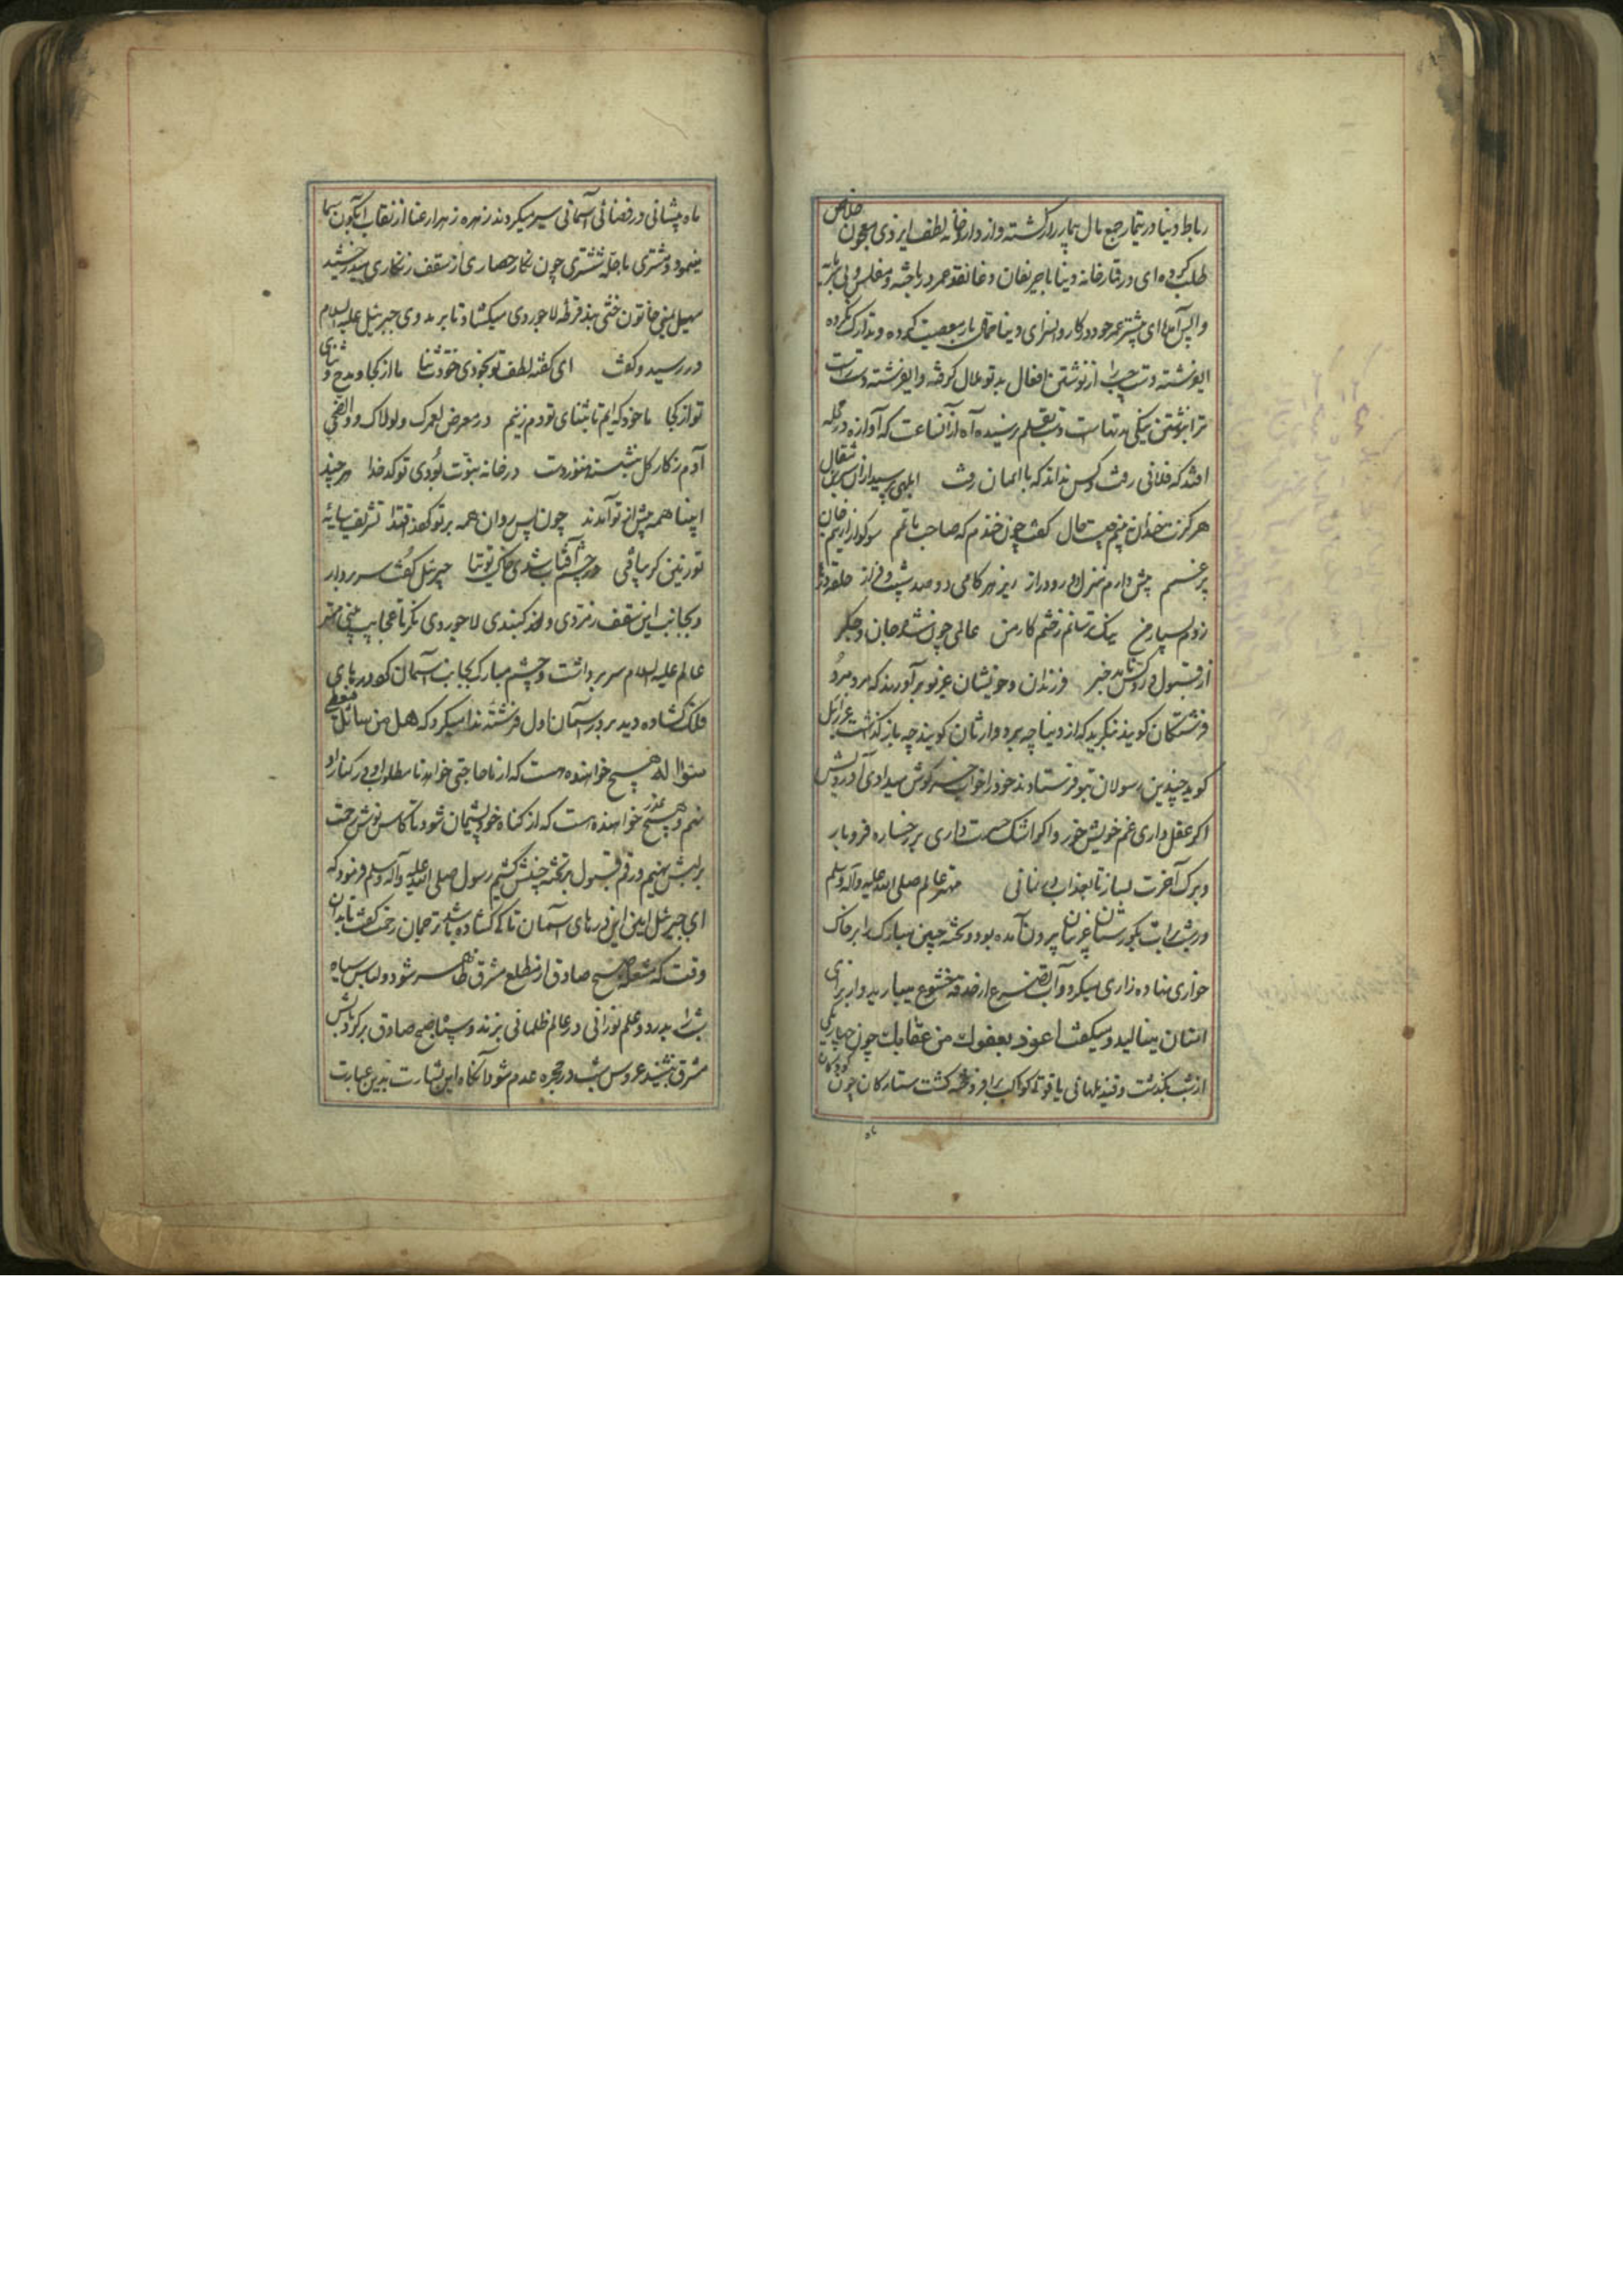 رباط دنیا در تیمار جمع مال بیمار گشته و از دارخانه لطف ایزدی معجون خلاص
طلب کرده ای در قمارخانه دنیا با حریفان دغا نقد عمر درباخته و مفلس و بی
واپس آمده ای بیشتر عمر خود در کاروانسرای دنیا حمالی بار معصیت کرده و تدارک نکرده
ای فرشته دست چپ را از نوشتن افعال بد تو ملال گرفته وای فرشته دست راست
ترا نوشتن نیکی بدست قلم نرسیده آه از آن ساعت که آوازه در محله
افتد که فلانی رفت و کس نداند که با ایمان رفت ابلهی پرسید از آن
هرگزت خندان نه بینم چیست حال گفت چون خندم که صاحب ماتم سوگوارم
پر غم پیش دارم منزلی دور و دراز زیر هر گامی دو صد شیب و فراز
زدم بسیار من یک ترسانم ز ختم کار من عالمی خون شد جان و جگر
از قبول و رد کس نامد خبر فرزندان و خویشان غریو برآورند که مرد مرد
فرشتگان گویند بنگرید که از دنیا چه برد وارثان گویند چه باز گذاشت عزرائیل
گوید چندین رسولان بتو فرستادند خود را خواب خرگوش میدادی آه درویش
اگر عقل داری غم خویش خور و اگر اشک حسرت داری بر رخساره فرو بار
و برگ آخرت بساز تا بعذاب در نمانی مهتر عالم صلی الله علیه وآله وسلم
در شب برات بگورستان غریبان بیرون آمده بود و تخته جبین مبارک را بر خاک
خواری نهاده زاری میکرد و آب تضرع از حدقه خشوع میبارید و از برای
امتان مینالید و میگفت اعوذ بعفوك من عقابك چون چهاریکی
از شب بگذشت و قندیلهای یاقوتی کواکب برافروخته گشت ستارگان چون
ماه پیشانی در فضائی آسمانی سیر میکردند زهره زهرا رعنا از نقاب آبگون سما
مینمود و مشتری با حله ششتری چون نگار حصاری از سقف زنگاری میدرخشید
سهیل یمنی خاتون ختنی بند قرطه لاجوردی میگشاد تا بر مه وی جبرئیل علیه السلام
در رسید و گفت ای گفته لطف تو بخودی خودت ثنا ما از کجا و مدح و ثنای
تو از کجا ما خود که ایم تا بثنای تو دم زنیم در معرض لعمرک و لولاک و والضحی
آدم ز کار گل ننشسته هنوز دست در خانه نبوت بودی تو کدخدا هر چند
انبیا همه پیش از تو آمدند چون پس روان همه بر تو کرده اقتدا تشریف سایه
تو زمین گر بیافتی در چشم آفتاب شدی خاک توتیا جبرئیل گفت سر بردار
و بجانب این سقف زمردی و این گنبدی لاجوردی نگر تا عجایب بینی مهتر
عالم علیه السلام سر برداشت و چشم مبارک بجانب آسمان کرد درهای
فلک گشاده دید بر در آسمان اول فرشته ندا میکرد که هل من سائل فیعطی
سؤاله هیچ خواهنده هست که از ما حاجتی خواهد تا مطلوب او در کنار او
نهیم و هیچ عذر خواهنده هست که از گناه خود پشیمان شود تا کاس نوش رحمت
بر لبش نهیم و رقم قبول بر تخته جبینش کشیم رسول صلی الله علیه وآله وسلم فرمود که
ای جبرئیل امین این درهای آسمان تا کی گشاده باشد ترجمان رحمت گفت تا بدان
وقت که مشعله صبح صادق از مطلع مشرق ظاهر شود و لباس سیاه
شب را بدرد و علم نورانی در عالم ظلمانی بزند و سپاه صبح صادق بر گرد
مشرق بنشیند عروس شب در حجره عدم شود آنگاه این بشارت بدین عبارت